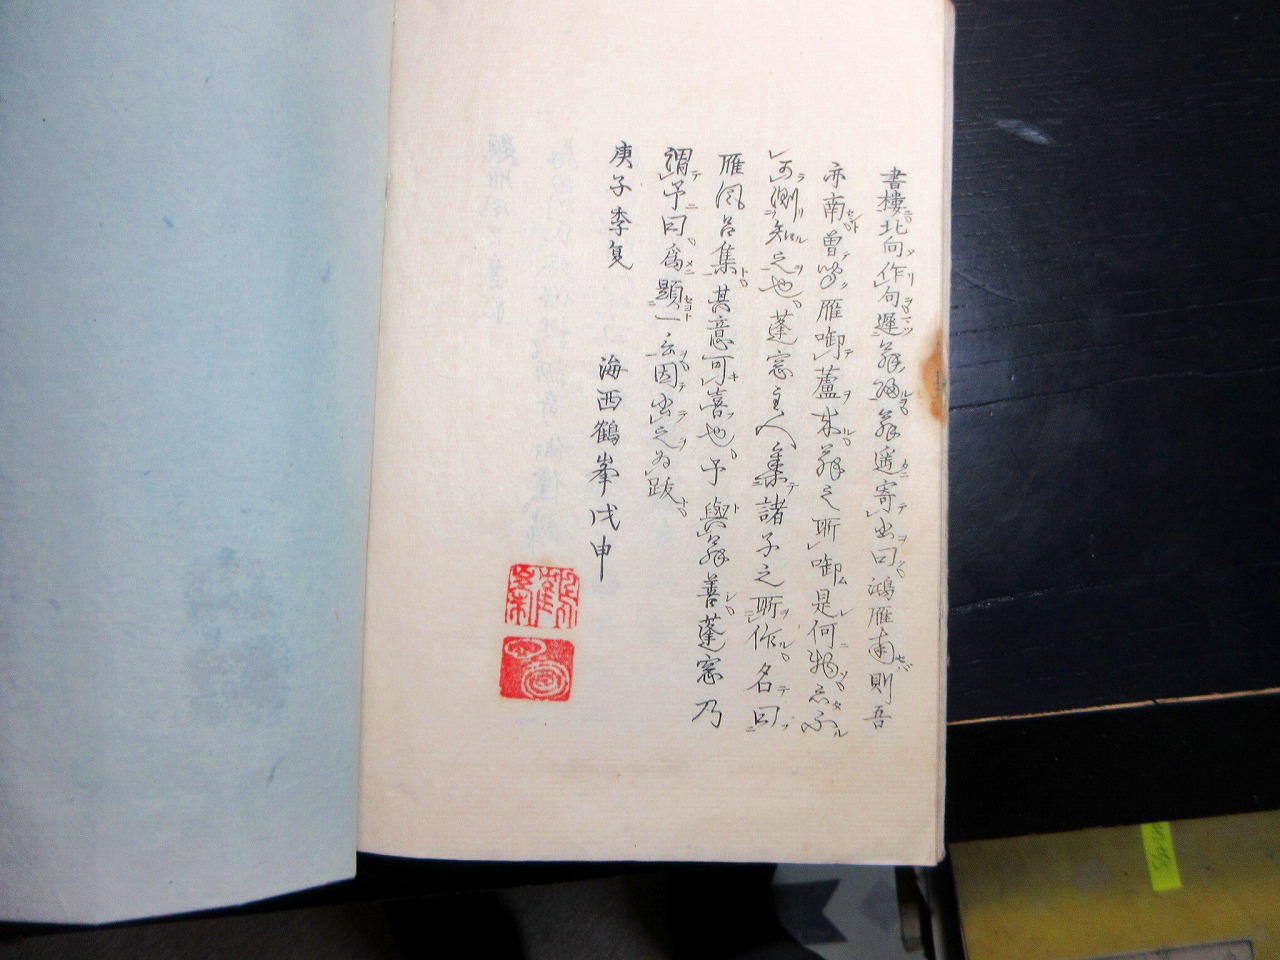 書樓北向作句遲翁歸翁遥寄出曰鴻雁南則吾
亦南曽聞雁啣蘆来翁之所啣是何物亦不
可測知之也蓬窓主人集諸子之所作名曰
雁風呂集其意可喜也予與翁善蓬窓乃
謂予曰為題一言因出之為跋
庚子季夏
海西鶴峯戊申